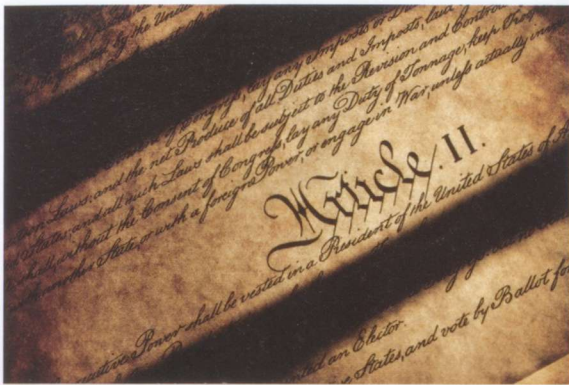 by the Unite
lay any Imposts or Du
and the net Produce of all Duties and Imposts, laid
Laws; and all such Laws shall be subject to the Revision and Contro
shall, without the Consent of Congress, lay any Duty of Tonnage, keep Troo
another State, or with a foreign Power, or engage in War, unless actually inva
Article. II.
ecutive Power shall be vested in a President of the United States of A
nted an Elector.
States, and vote by Ballot for